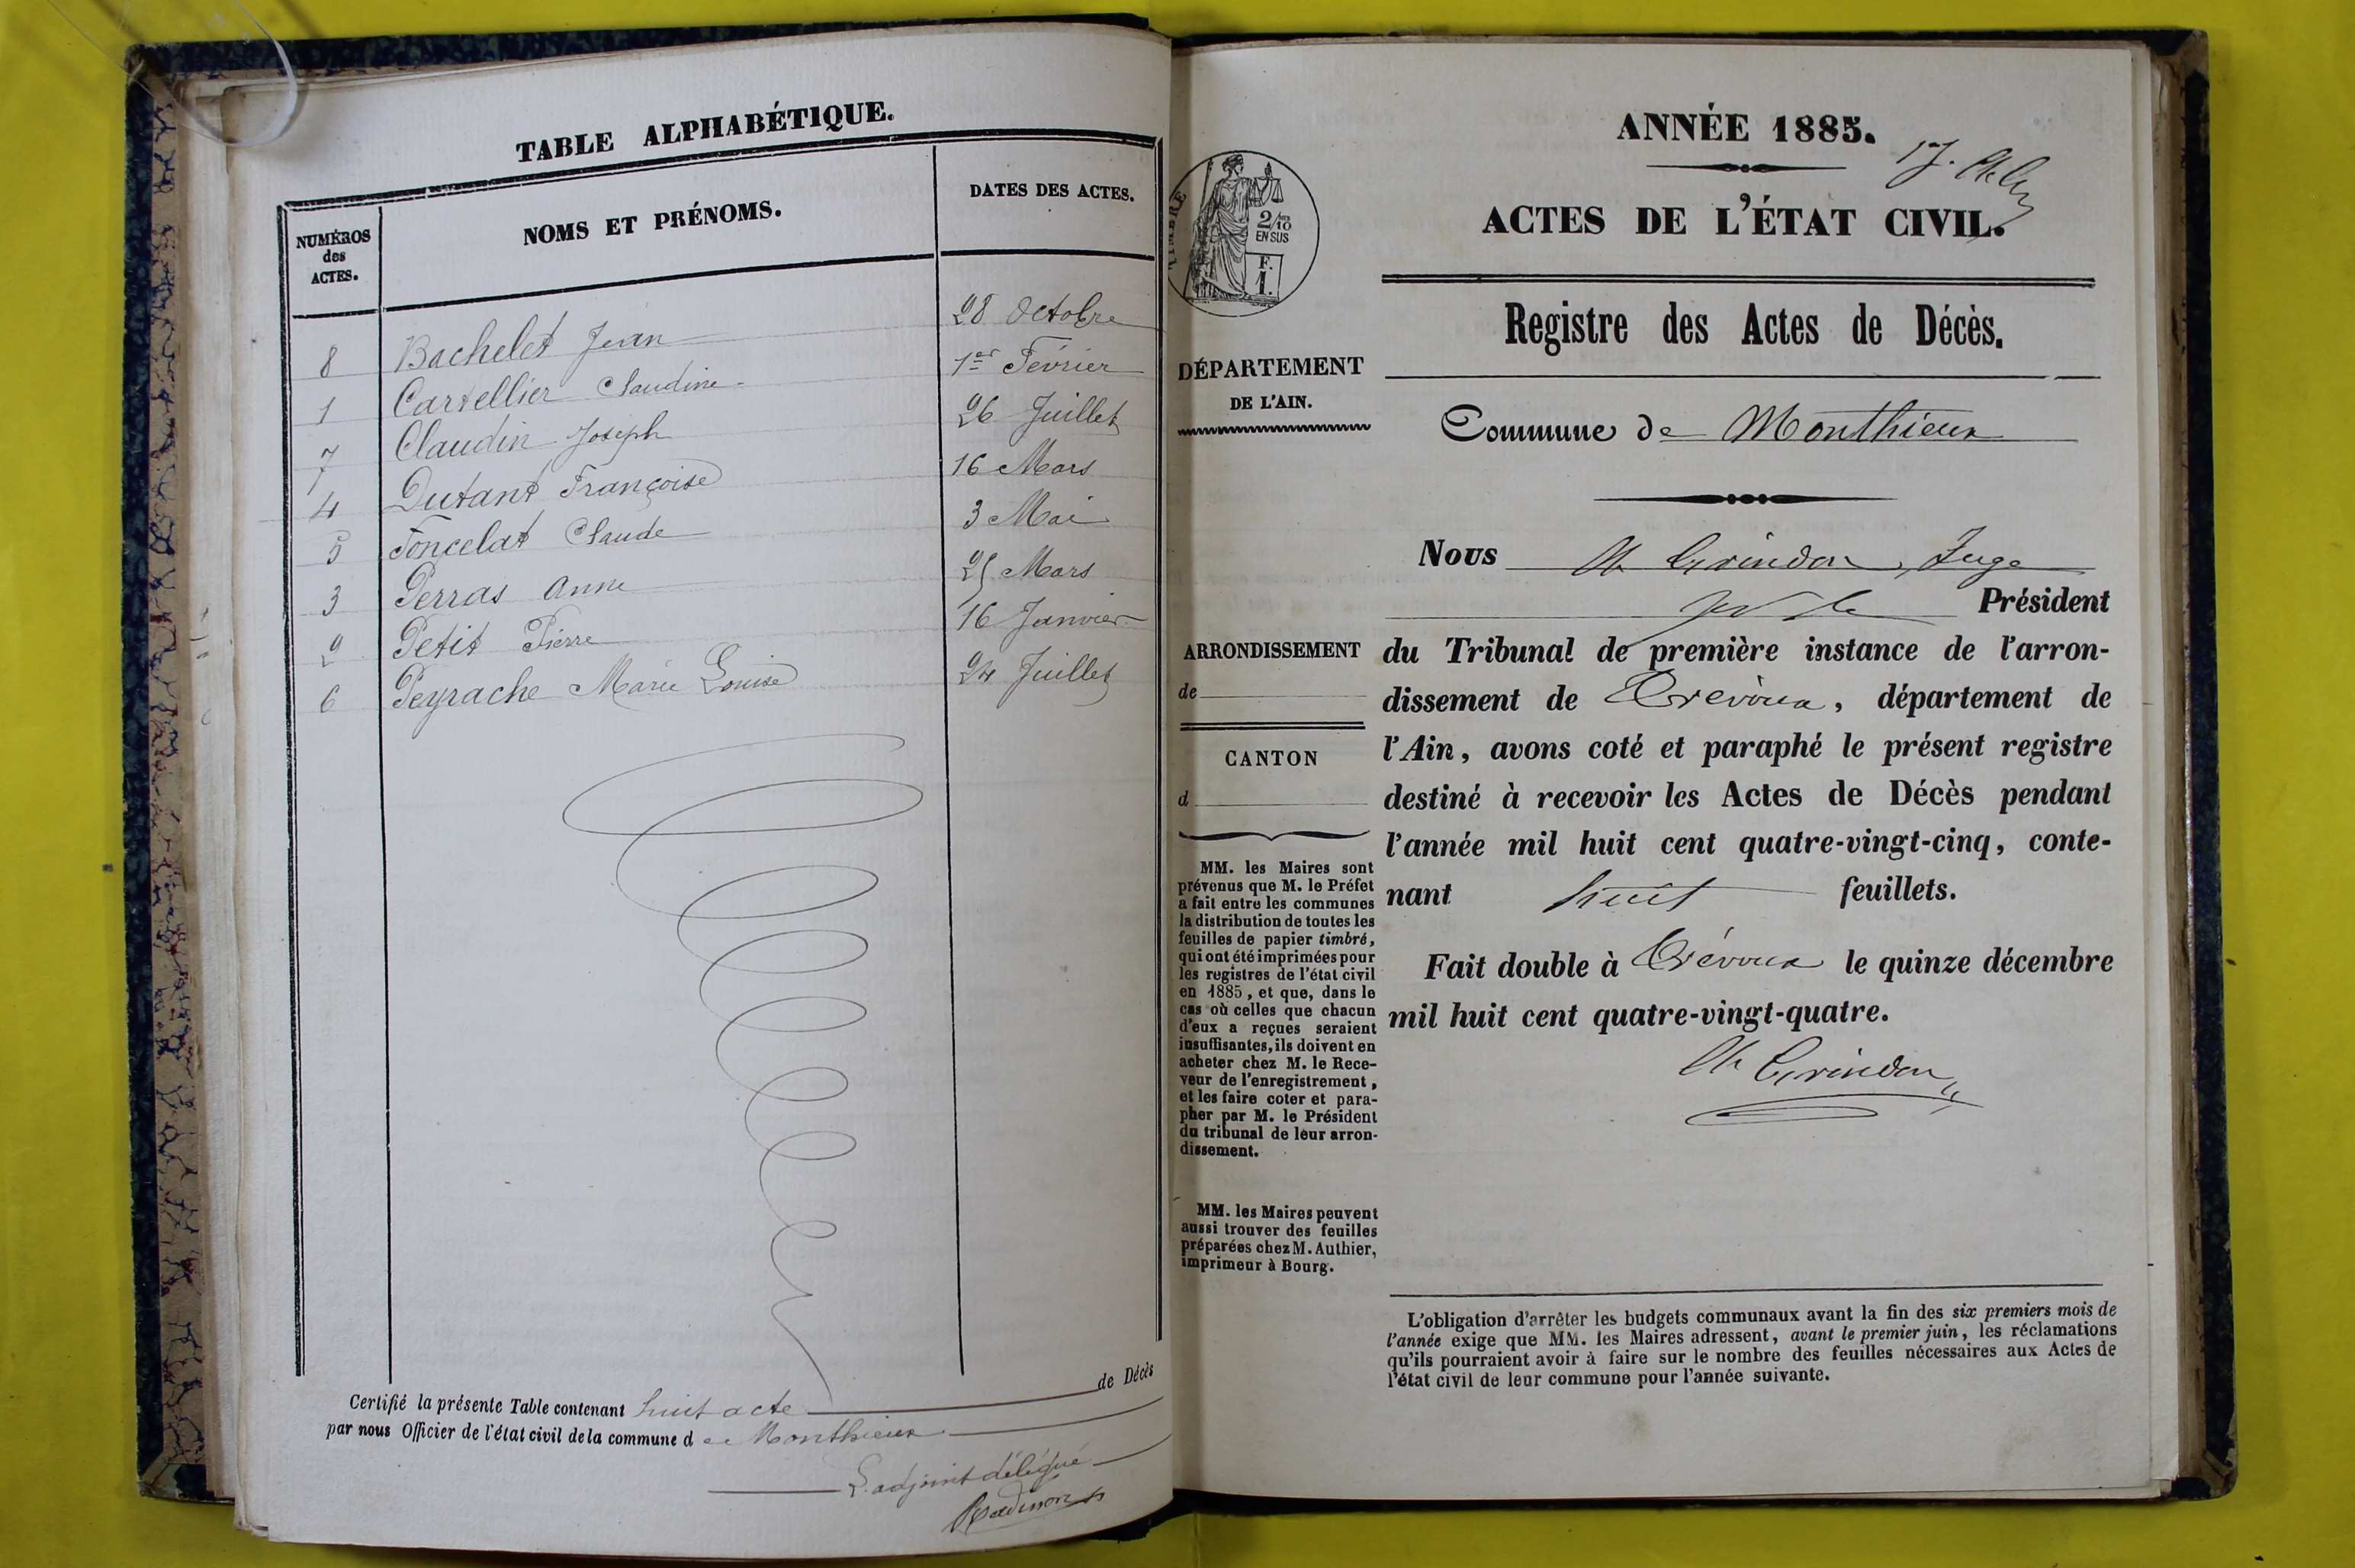 TABLE ALPHABÉTIQUE.
NUMÉROS
des
ACTES.
NOMS ET PRÉNOMS.
DATES DES ACTES.
8 Bachelet Jean 28 Octobre
1 Cartellier Claudine 1er Février
7 Claudin Joseph 26 Juillet
4 Dutant Françoise 16 Mars
5 Foncelat Claude 3 Mai
3 Perras Anne 25 Mars
2 Petit Pierre 16 Janvier
6 Peyrache Marie Louise 24 Juillet
Certifié la présente Table contenant huit acte de Décès
par nous Officier de l'état civil de la commune de Monthieux
L'adjoint délégué
ANNÉE 1885.
ACTES DE L'ÉTAT CIVIL.
TIMBRE
2/10
EN SUS
F.
1.
Registre des Actes de Décès.
DÉPARTEMENT
DE L'AIN.
Commune de Monthieux
Nous Grindon, Juge
Président
du Tribunal de première instance de l'arron-
dissement de Trévoux, département de
l'Ain, avons coté et paraphé le présent registre
destiné à recevoir les Actes de Décès pendant
l'année mil huit cent quatre-vingt-cinq, conte-
nant huit feuillets.
Fait double à Trévoux le quinze décembre
mil huit cent quatre-vingt-quatre.
Grindon
ARRONDISSEMENT
de
CANTON
d
MM. les Maires sont
prévenus que M. le Préfet
a fait entre les communes
la distribution de toutes les
feuilles de papier timbré,
qui ont été imprimées pour
les registres de l'état civil
en 1885, et que, dans le
cas où celles que chacun
d'eux a reçues seraient
insuffisantes, ils doivent en
acheter chez M. le Rece-
veur de l'enregistrement,
et les faire coter et para-
pher par M. le Président
du tribunal de leur arron-
dissement.
MM. les Maires peuvent
aussi trouver des feuilles
préparées chez M. Authier,
imprimeur à Bourg.
L'obligation d'arrêter les budgets communaux avant la fin des six premiers mois de
l'année exige que MM. les Maires adressent, avant le premier juin, les réclamations
qu'ils pourraient avoir à faire sur le nombre des feuilles nécessaires aux Actes de
l'état civil de leur commune pour l'année suivante.